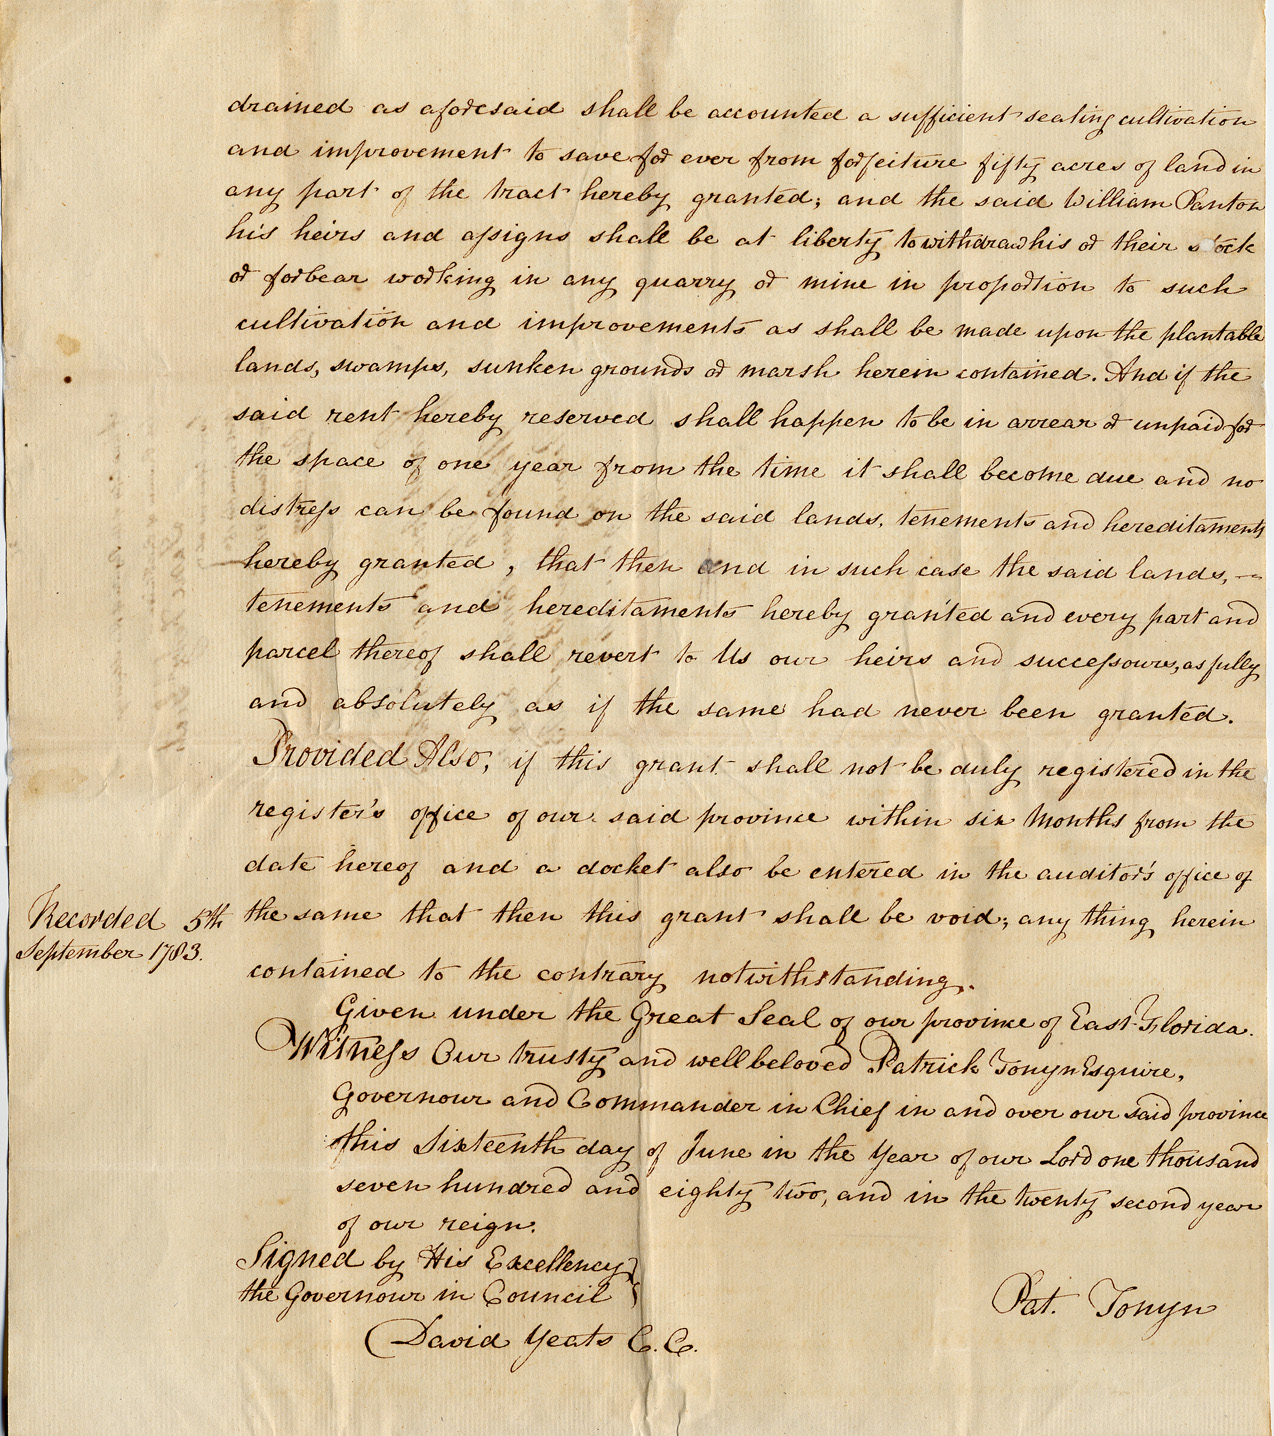 drained as aforesaid shall be accounted a sufficient seating cultivation
and improvement to save for ever from forfeiture fifty acres of land in
any part of the tract hereby granted; and the said William Panton
his heirs and assigns shall be at liberty to withdraw his or their stock
or forbear working in any quarry or mine in proportion to such
cultivation and improvements as shall be made upon the plantable
lands, swamps, sunken grounds or marsh herein contained. And if the
said rent hereby reserved shall happen to be in arrear or unpaid for
the space of one year from the time it shall become due and no
distress can be found on the said lands, tenements and hereditaments
hereby granted, that then and in such case the said lands, —
tenements and hereditaments hereby granted and every part and
parcel thereof shall revert to Us our heirs and successours, as fully
and absolutely as if the same had never been granted.
Provided Also, if this grant shall not be duly registered in the
register's office of our said province within six Months from the
date hereof and a docket also be entered in the auditor's office of
Recorded 5th
September 1783.
the same that then this grant shall be void; any thing herein
contained to the contrary notwithstanding.
Given under the Great Seal of our province of East-Florida.
Witness Our trusty and well beloved Patrick Tonyn Esquire,
Governour and Commander in Chief in and over our said province
this Sixteenth day of June in the Year of our Lord one thousand
seven hundred and eighty two, and in the twenty second year
of our reign.
Signed by His Excellency
the Governour in Council
Pat. Tonyn
David Yeats C.C.